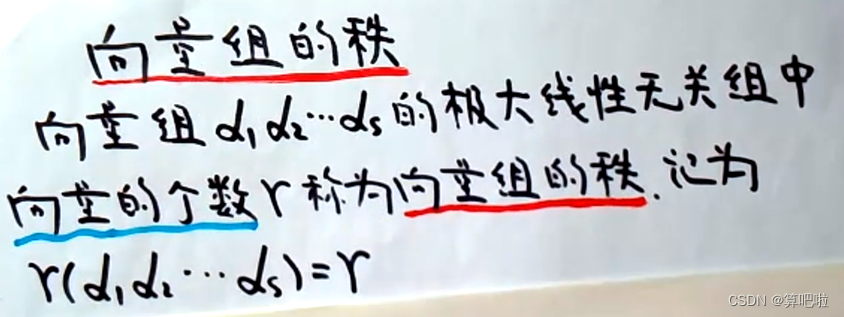 向量组的秩
向量组α₁α₂⋯αₛ的极大线性无关组中
向量的个数r称为向量组的秩.记为
r(α₁α₂⋯αₛ)=r
CSDN @算吧啦